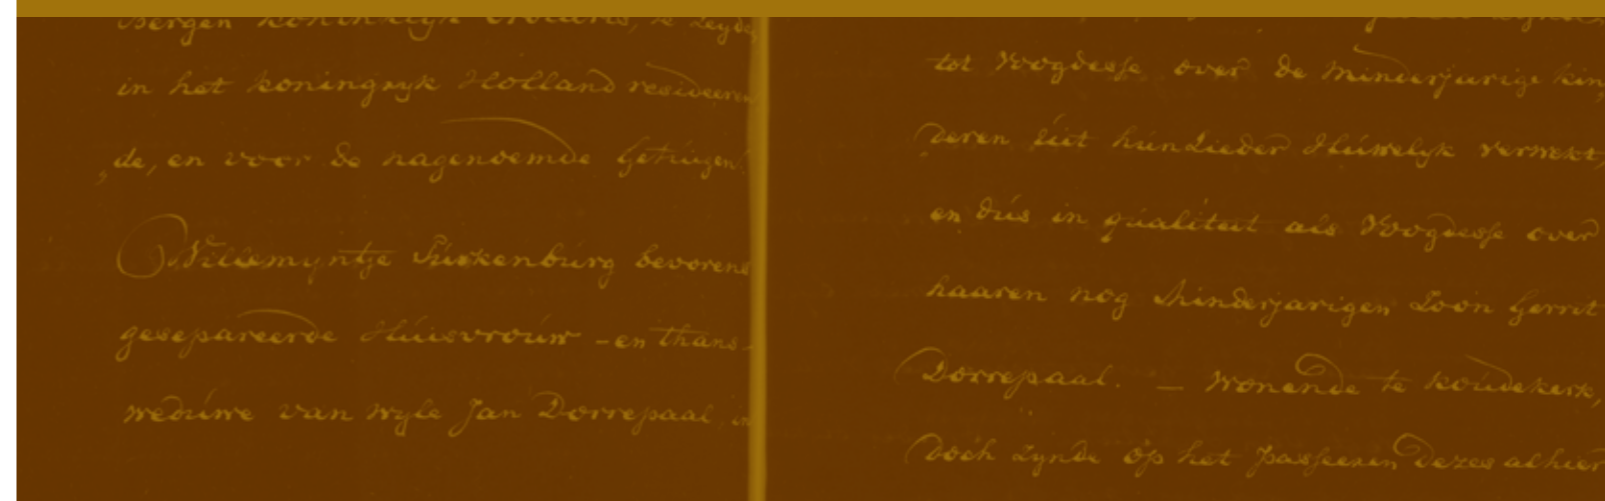 Bergen koninklijk
in het koningryk Holland resideeren
„de, en voor de nagenoemde Getuigen.
Willemyntje bevorens
gesepareerde Huisvrouw – en thans
weduwe van wyle Jan Dorrepaal, in
tot Voogdesse over de minderjarige kin„
deren uit hun Lieder Huwelyk verwekt,
en dus in qualiteit als Voogdesse over
haaren nog minderjarigen Zoon Gerrit
Dorrepaal. — Wonende te koudekerk,
doch zynde op het passeeren dezes alhier